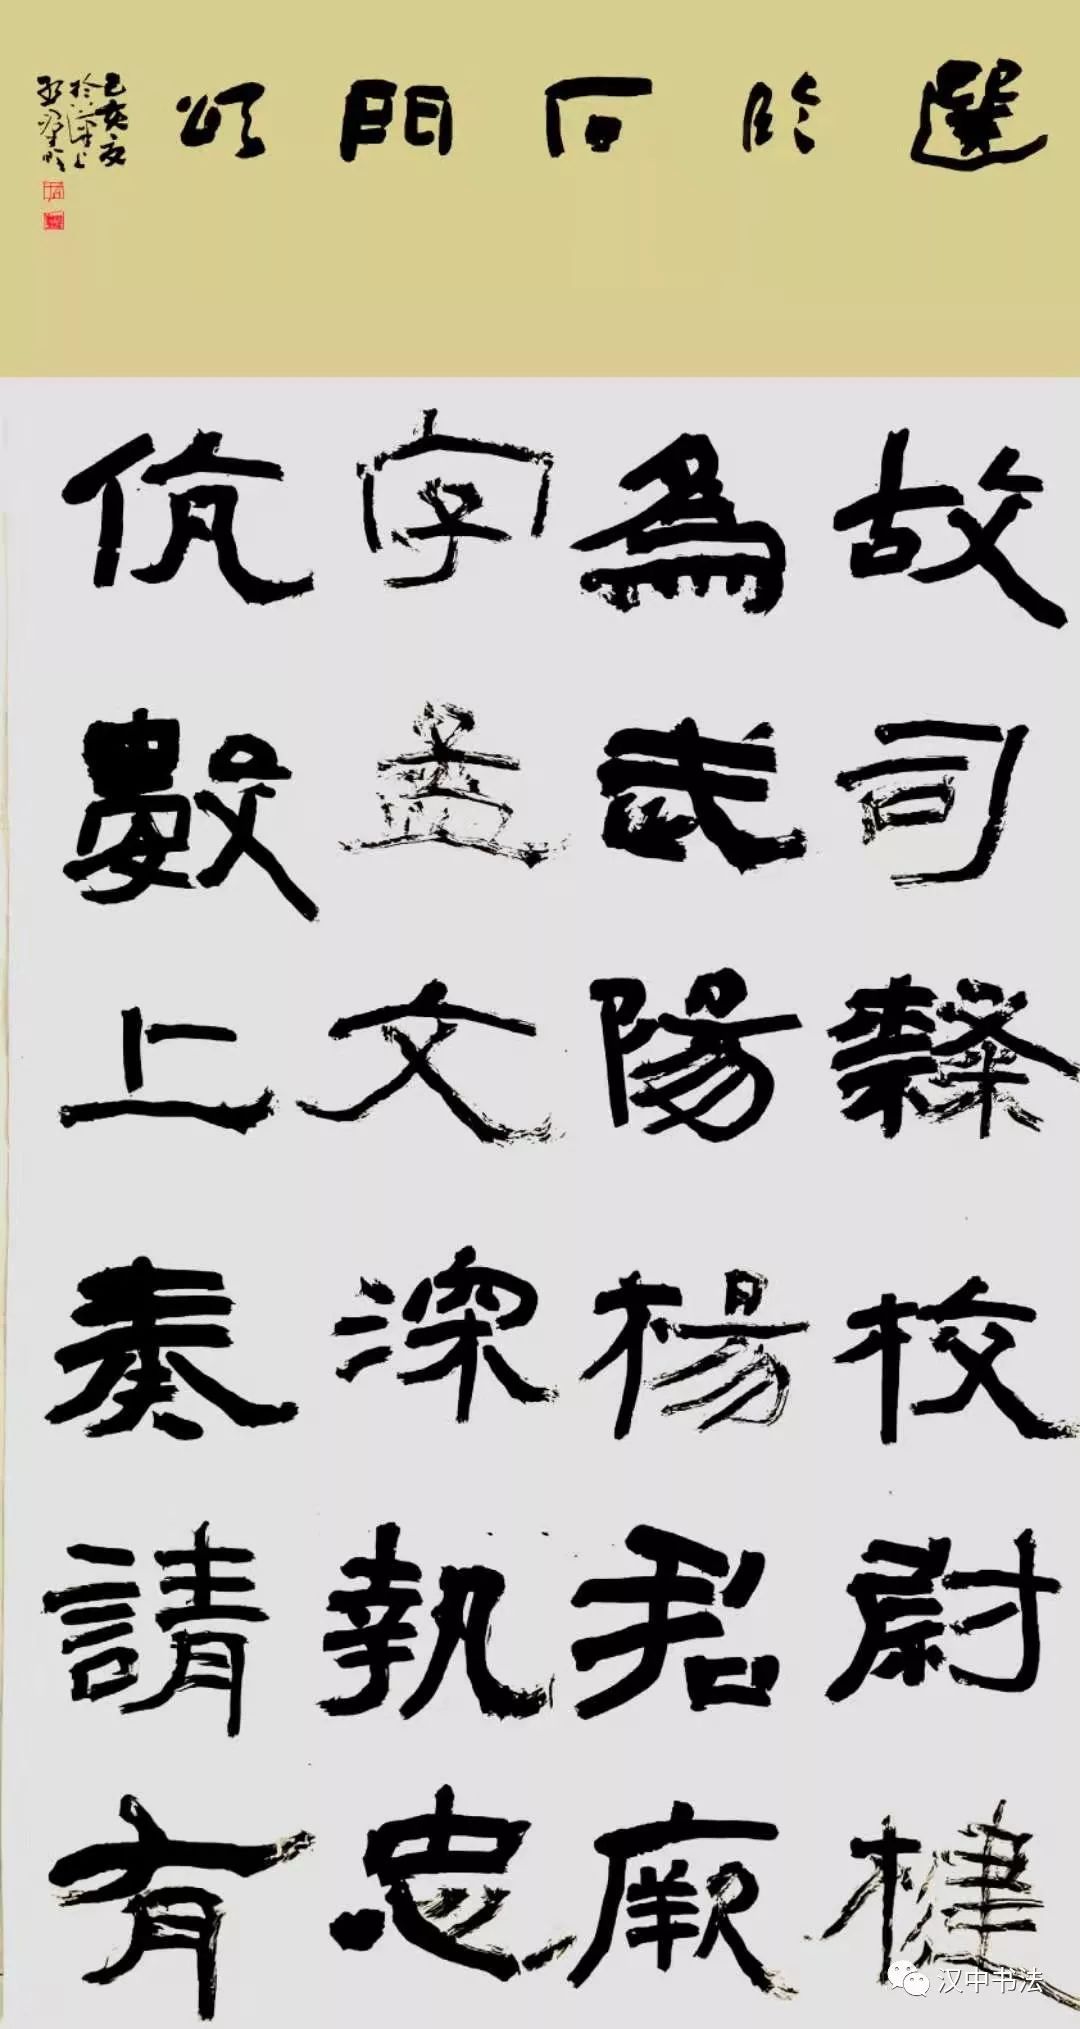 選臨石門頌
己亥夏
於漢上
故司隸校尉楗
為武陽楊君厥
字孟文深執忠
伉數上奏請有
汉中书法